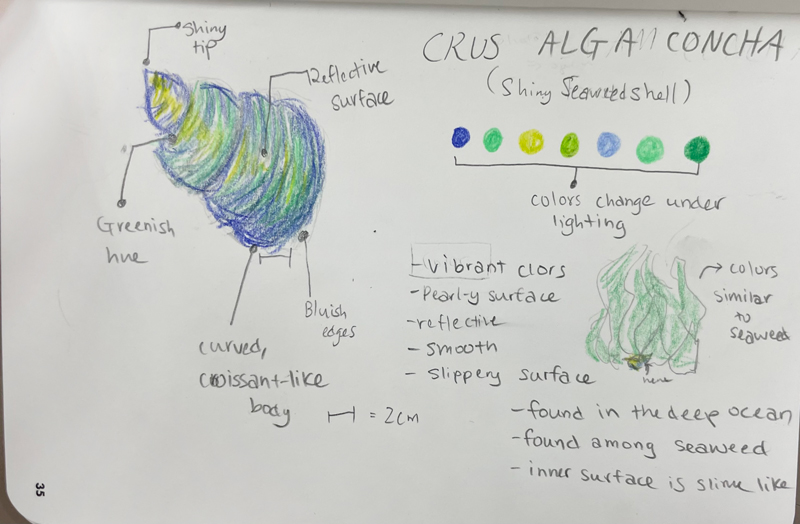 Shiny
tip
Reflective
surface
Greenish
hue
curved,
croissant-like
body
Bluish
edges
= 2cm
CRUS ALGAM CONCHA
(Shiny Seaweedshell)
colors change under
lighting
- vibrant clors
- Pearl-y surface
- reflective
- smooth
- slippery surface
colors
similar
to
seaweed
here
- found in the deep ocean
- found among seaweed
- inner surface is slime like
35